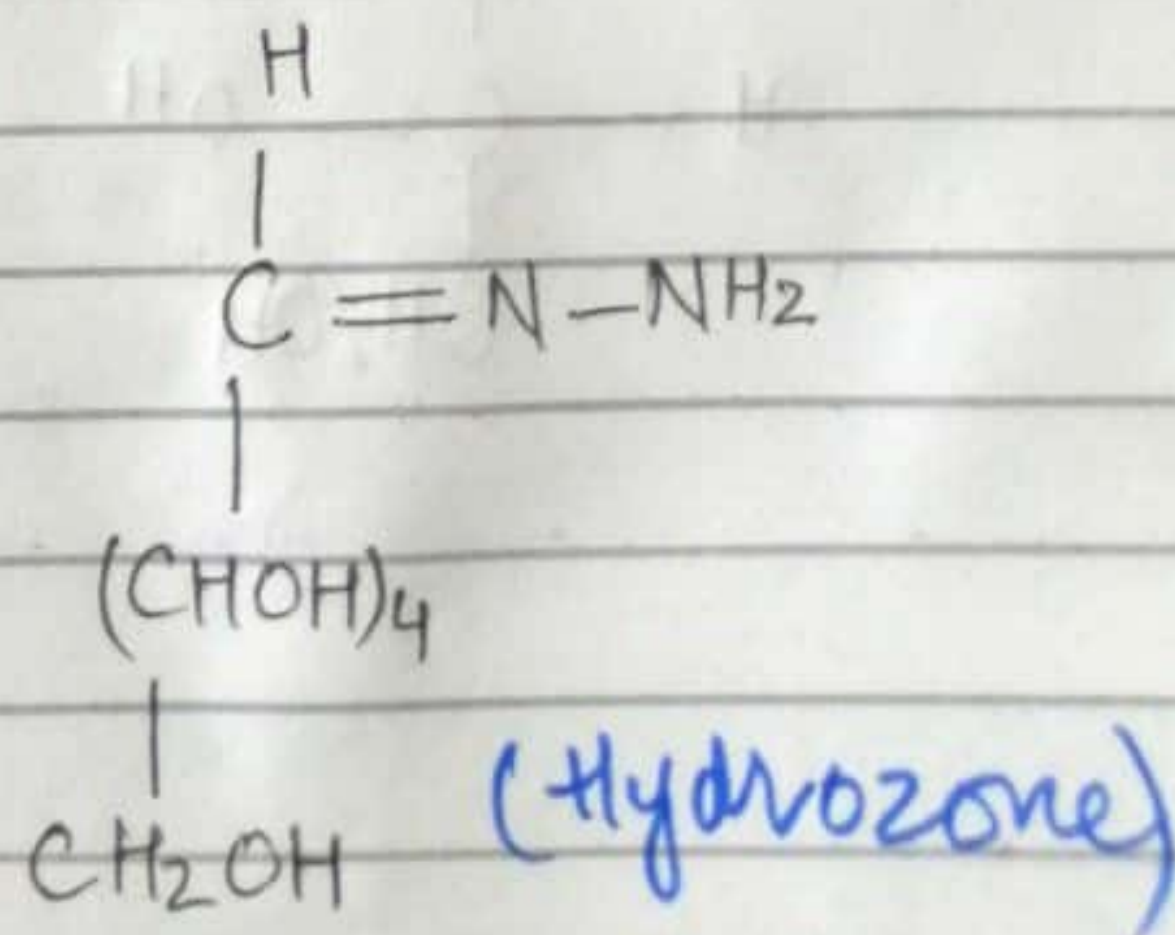 H
|
C=N-NH2
|
(CHOH)4
|
CH2OH (Hydrozone)